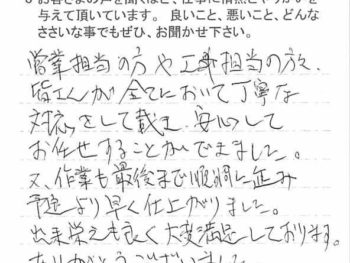 お客さまの声を聞くほど、仕事に情熱とやりがいを
与えて頂いています。 良いこと、悪いこと、どんな
ささいな事でもぜひ、お聞かせ下さい。
営業担当の方や工事担当の方々、
皆さんが全てにおいて丁寧な
対応をして戴き、安心して
お任せすることができました。
又、作業も最後まで順調に進み
予定より早く仕上がりました。
出来栄えも良く大変満足しております。
ありがとうございました